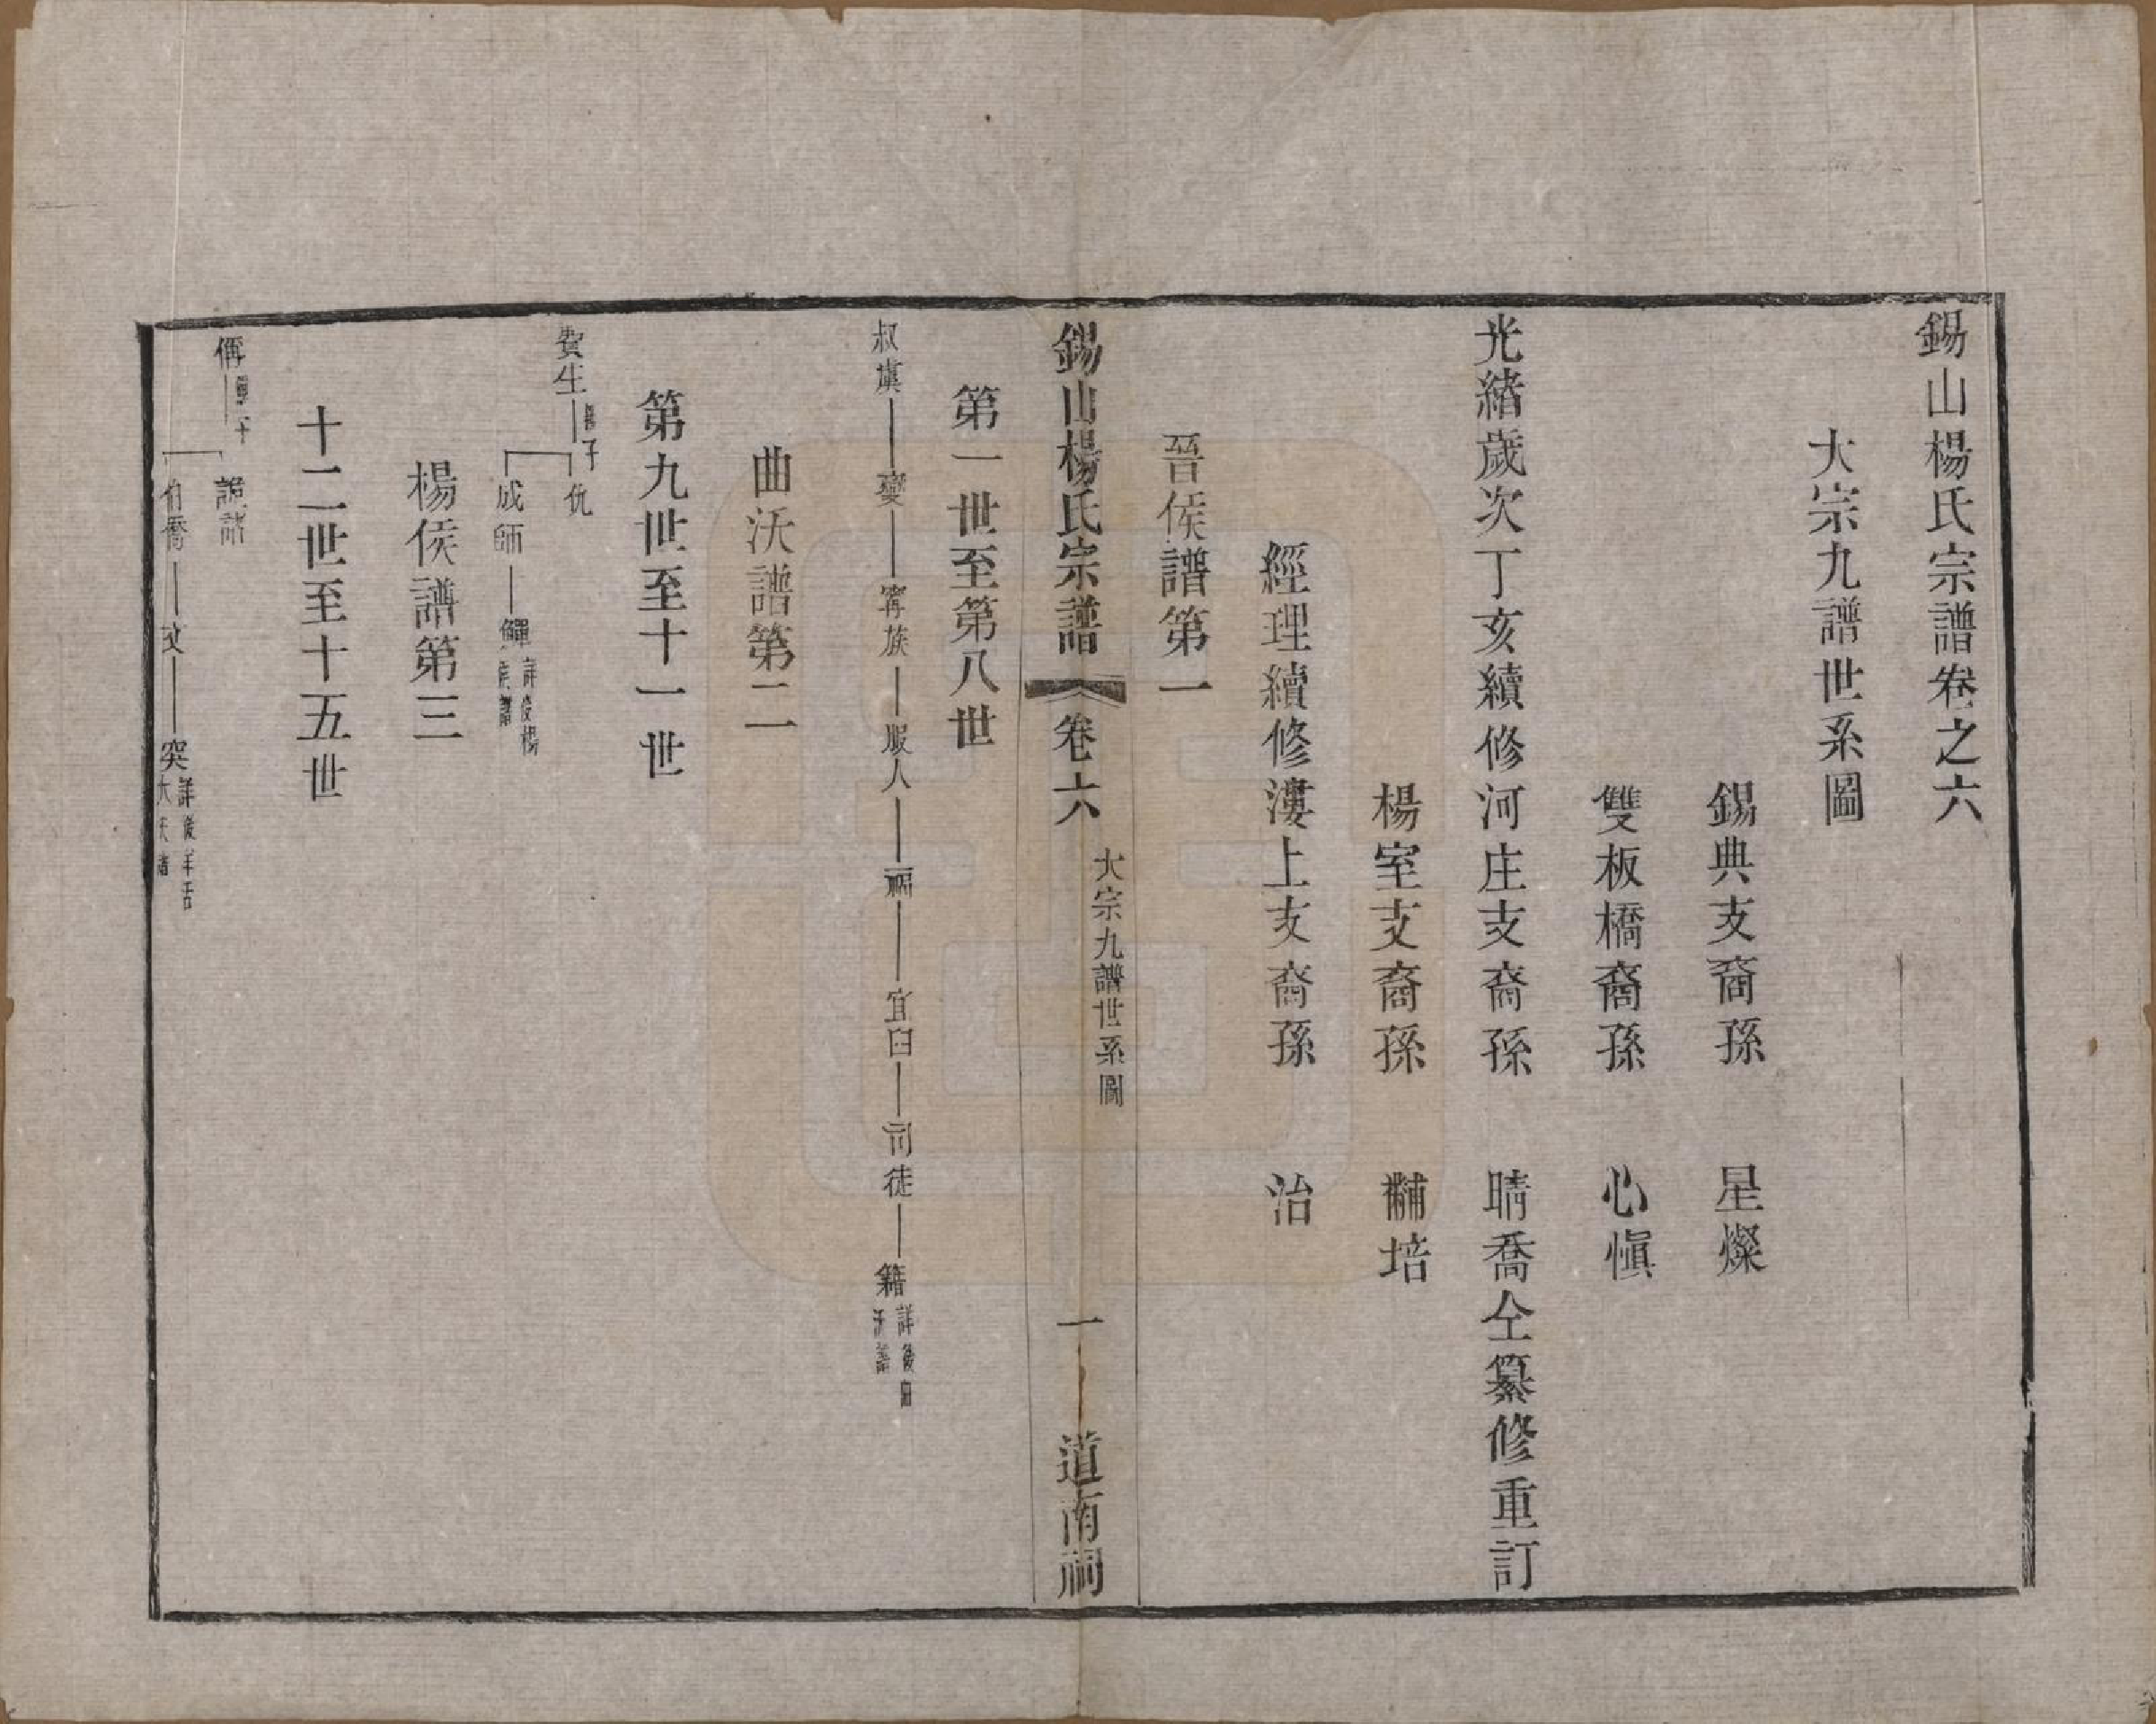 錫山楊氏宗譜卷之六
大宗九譜世系圖
錫典支裔孫 星燦
雙板橋裔孫 心愼
光緒歲次丁亥續修河庄支裔孫 晴喬仝纂修重訂
楊室支裔孫 黼培
經理續修漊上支裔孫 治
晉侯譜第一
錫山楊氏宗譜 卷六 大宗九譜世系圖 一 道南祠
第一世至第八世
叔虞 燮 寗族 服人 福 宜臼 司徒 籍 詳後曲沃譜
曲沃譜第二
第九世至十一世
費生 子 仇
成師 鱓 詳後楊侯譜
楊侯譜第三
十二世至十五世
偁 詭諸
伯僑 文 突 詳後羊舌大夫譜